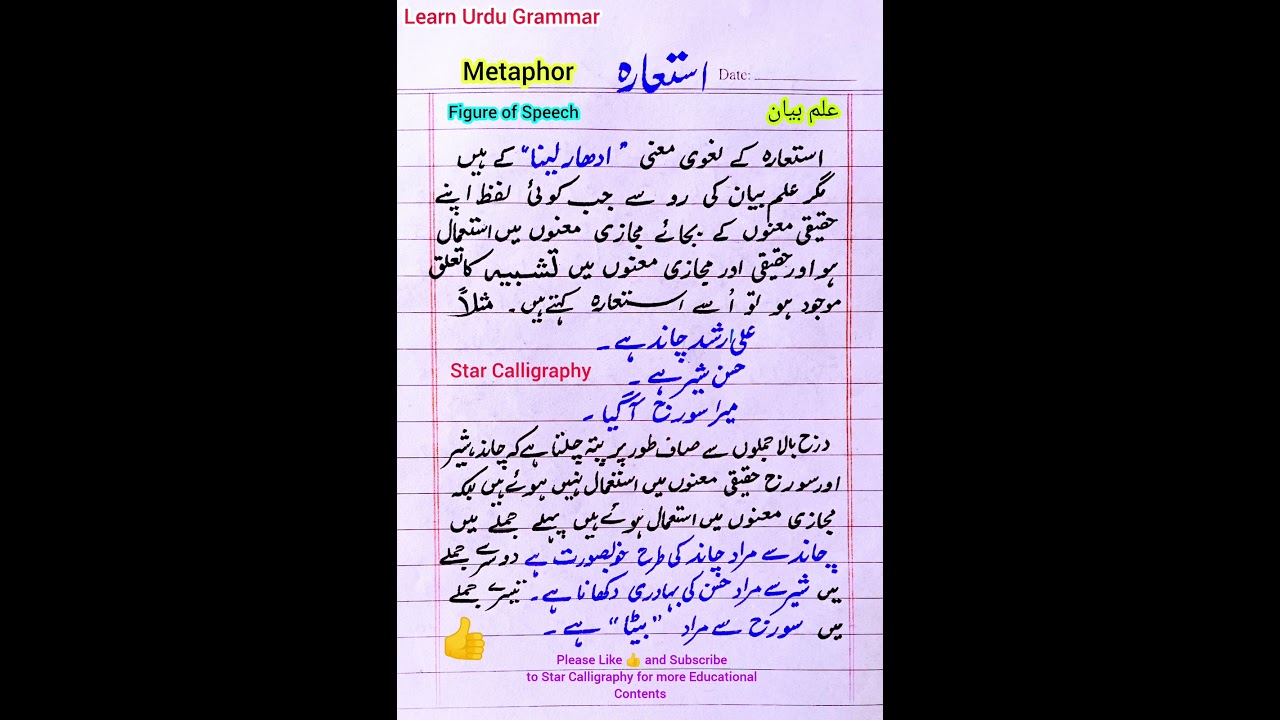 Learn Urdu Grammar
Metaphor استعارہ Date:
Figure of Speech علم بیان
استعارہ کے لغوی معنی "ادھار لینا" کے ہیں
مگر علم بیان کی رو سے جب کوئی لفظ اپنے
حقیقی معنوں کے بجائے مجازی معنوں میں استعمال
ہو اور حقیقی اور مجازی معنوں میں تشبیہ کا تعلق
موجود ہو تو اُسے استعارہ کہتے ہیں۔ مثلاً
علی ارشد چاند ہے۔
Star Calligraphy حسن شیر ہے۔
میرا سورج آ گیا۔
درج بالا جملوں سے صاف طور پر پتہ چلتا ہے کہ چاند، شیر
اور سورج حقیقی معنوں میں استعمال نہیں ہوئے ہیں بلکہ
مجازی معنوں میں استعمال ہوئے ہیں پہلے جملے میں
چاند سے مراد چاند کی طرح خوبصورت ہے دوسرے جملے
میں شیر سے مراد حسن کی بہادری دکھانا ہے۔ تیسرے جملے
میں سورج سے مراد "بیٹا" ہے۔
Please Like 👍 and Subscribe
to Star Calligraphy for more Educational
Contents